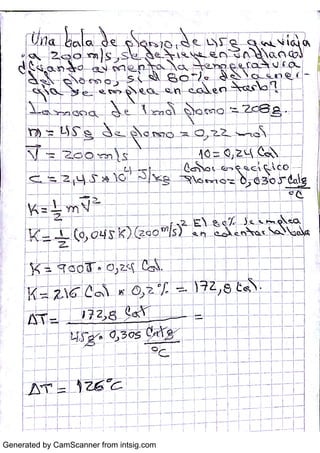 Una bala de plomo, de 45g que viaja
a 200 m/s, se detiene en un blanco
¿Cuando aumenta la temperatura
del plomo, si el 80% de la ener-
gia se emplea en calentarlo?
1 mol plomo = 208g.
m = 45g de plomo = 0,22 mol
V = 200 m/s 1J = 0,24 Cal
C = 2,45 * 10⁴ J/kg Calor especifico
Plomo = 0,0305 Cal/g °C
K = 1/2 m V²
K = 1/2 (0,045 K) (200 m/s)² El 80% se emplea
en calentar la bala
K = 900J · 0,24 Cal.
K = 216 Cal * 0,2% = 172,8 Cal.
ΔT = 172,8 Cal / 45g · 0,305 Cal/g °C =
ΔT = 126°C
Generated by CamScanner from intsig.com